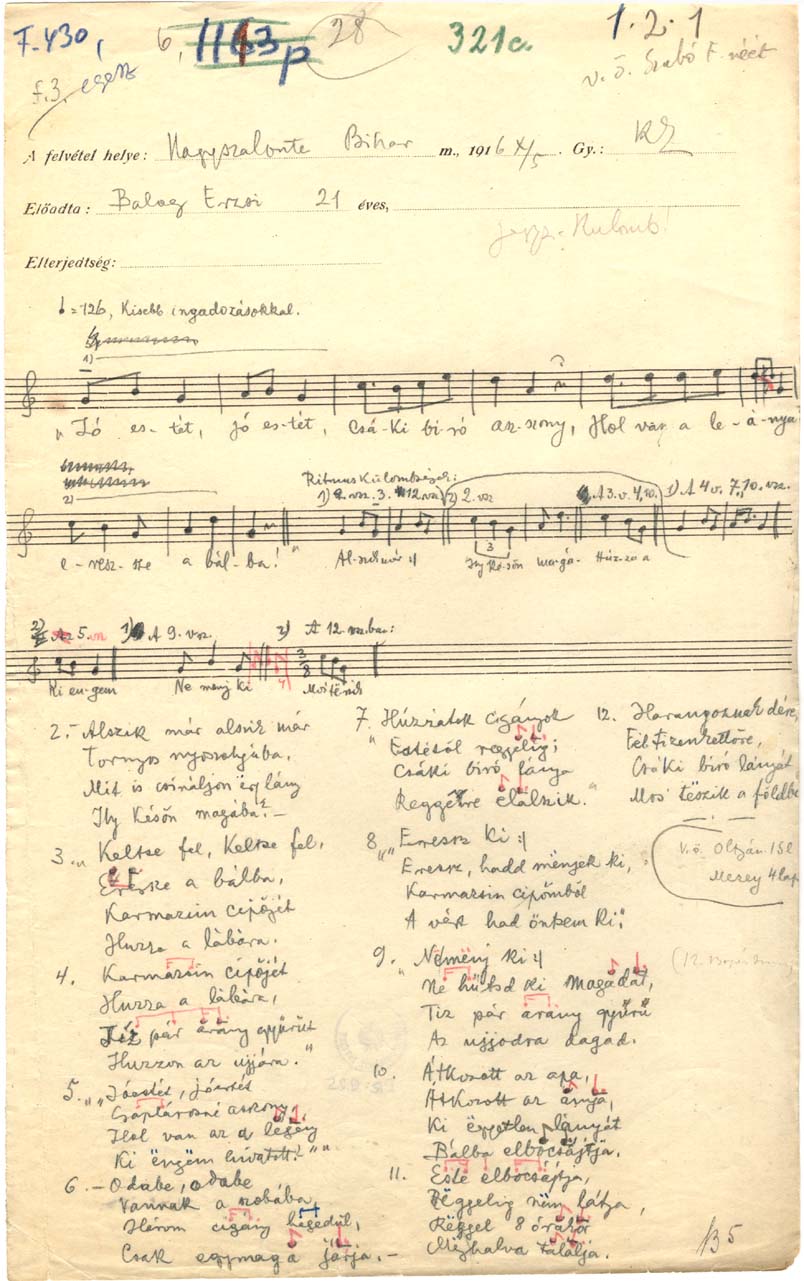 F. 430, 6, 1163 p 28 321c. 1.2.1
f.3. egesz v. ö. Szabó F.
A felvétel helye: Nagyszalonta Bihar m., 1916 X/5. Gy.: KZ
Előadta: Balog Erzsi 21 éves,
Elterjedtség:
=126, Kisebb ingadozásokkal.
1)
„Jó es-tét, jó es-tét, Csá-ki bi-ró asz-szony, Hol van a le-á-nya?
2) Ritmus Külömbségek:
1) 2. vsz. 3. 12. vsz. 2) 2. vsz A 3. v. 4, 10. 1) A 4 v. 7, 10. vsz.
e-resz-sze a bál-ba!" Al-szik már :| Ily ké-sőn ma-gá- Húz-za a
2) Az 5. 1) A 9. vsz. 2) A 12. vsz.ban:
Ki en-gem Ne menj ki Mos tészik
2.- Alszik már alszik már
Tornyos nyoszolyába,
Mit is csináljon ëgy lány
Ily Későn magába? -
3. „ Keltse fel, Keltse fel,
Eressze a bálba,
Karmazsin cipőjét
Huzza a lábára.
4. Karmazsin cipőjét
Huzza a lábára,
Tiz pár arany gyürüt
Huzzon az ujjára."
5. „„Jóestét, jóestét
Csaplárosné asszony,
Hol van az a legény
Ki ëngëm hivatott!""
6. - Odabe, odabe
Vannak a szobába,
Három cigány hegedül,
Csak egymaga járja. -
7. Húzzátok cigányok
„Estétől reggelig;
Csáki biró lánya
Reggelre elalszik."
8. „" Eressz ki :|
Eressz, hadd mënjek ki,
Karmazsin cipőmből
A vért had öntsem ki."
9. Ne mënj ki :|
„Ne hütsd ki magadat,
Tiz pár arany gyürü
Az ujjodra dagad.
10. Átkozott az apa,
Átkozott az anya,
Ki ëggyetlen lányát
Bálba elbocsájtja.
11. Este elbocsájtja,
Rëggelig nëm látja,
Rëggel 8 órakor
Mëghalva találja.
12. Harangoznak délre,
Fél tizenkettőre,
Csáki biró lányát
Mos' tëszik a földbe
V. ö. Oltyán 15l
Mezey 4 lap